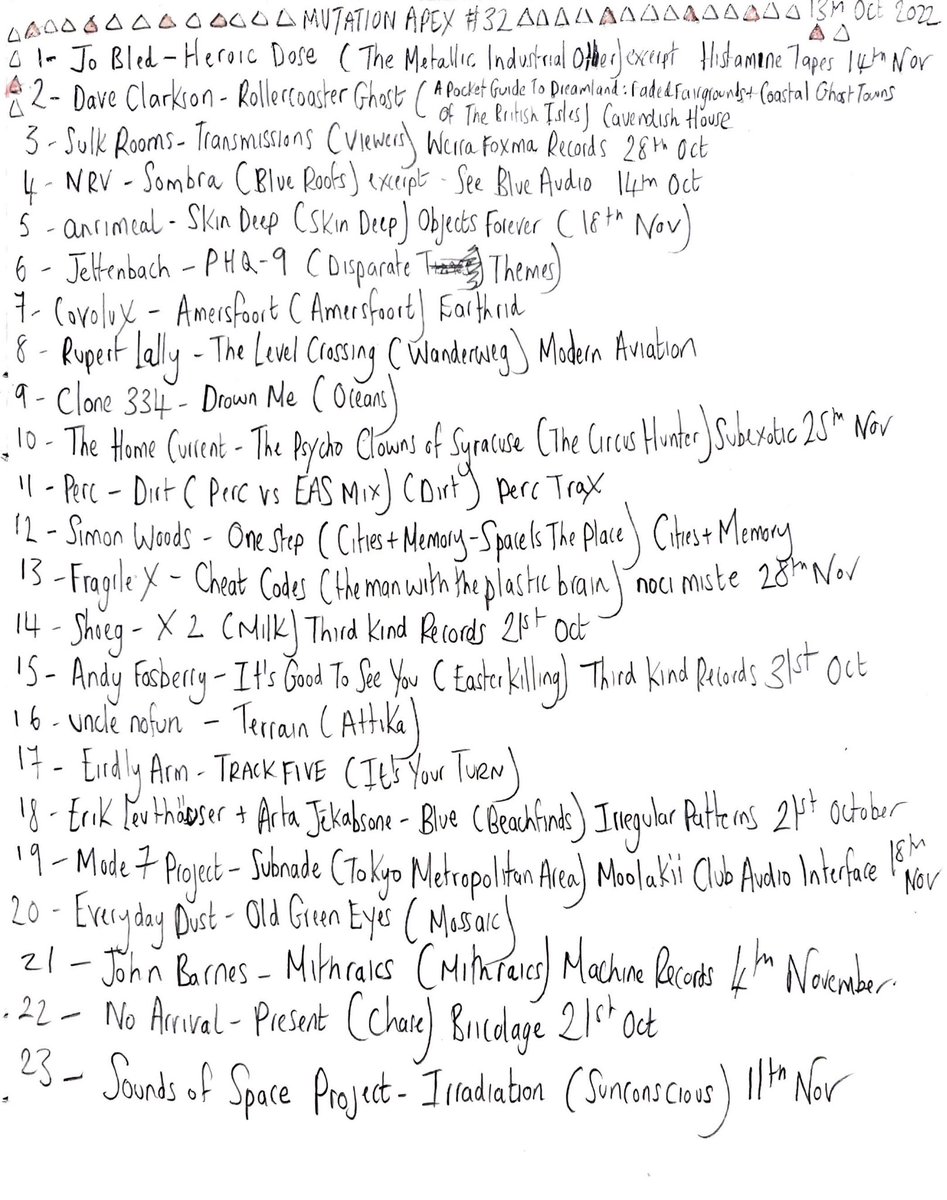 MUTATION APEX #32 13th Oct 2022
1- Jo Bled - Heroic Dose (The Metallic Industrial Other) exerpt Histamine Tapes 14th Nov
2- Dave Clarkson - Rollercoaster Ghost (A Pocket Guide To Dreamland: Faded Fairgrounds + Coastal Ghost Towns
Of The British Isles) Cavendish House
3 - Sulk Rooms - Transmissions (Viewers) Weira Foxma Records 28th Oct
4 - NRV - Sombra (Blue Roots) exerpt - See Blue Audio 14th Oct
5 - anrimeal - Skin Deep (Skin Deep) Objects Forever (18th Nov)
6 - Jettenbach - PHQ-9 (Disparate Themes)
7 - Covolux - Amersfoort (Amersfoort) Earthrid
8 - Rupert Lally - The Level Crossing (Wanderweg) Modern Aviation
9 - Clone 334 - Drown Me (Oceans)
10 - The Home Current - The Psycho Clowns of Syracuse (The Circus Hunter) Subexotic 25th Nov
11 - Perc - Dirt (Perc vs EAS Mix) (Dirt) Perc Trax
12 - Simon Woods - One Step (Cities + Memory - Space Is The Place) Cities + Memory
13 - Fragile X - Cheat Codes (the man with the plastic brain) noci miste 28th Nov
14 - Shoeg - X 2 (Milk) Third Kind Records 21st Oct
15 - Andy Fosberry - It's Good To See You (Easterkilling) Third Kind Records 31st Oct
16 - uncle nofun - Terrain (Attika)
17 - Eirdly Arm - TRACK FIVE (It's Your Turn)
18 - Erik Leuthäuser + Arta Jēkabsone - Blue (Beachfinds) Irregular Patterns 21st October
19 - Mode 7 Project - Subnade (Tokyo Metropolitan Area) Moolakii Club Audio Interface 18th Nov
20 - Everyday Dust - Old Green Eyes (Mossaic)
21 - John Barnes - Mithraics (Mithraics) Machine Records 4th November.
22 - No Arrival - Present (Chase) Bricolage 21st Oct
23 - Sounds of Space Project - Irradiation (Sunconscious) 11th Nov